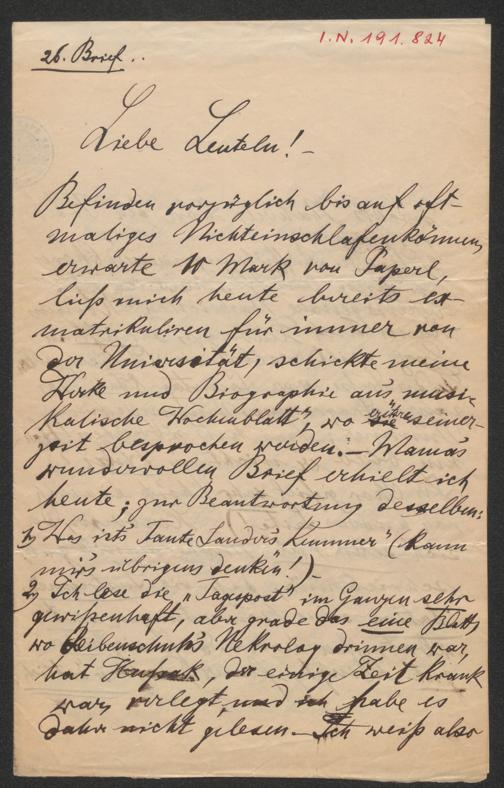 I.N. 191.824
26. Brief..
Liebe Leuteln! –
Befinden vorzüglich bis auf oft-
maliges Nichteinschlafenkönnen,
erwarte 10 Mark von Paperl,
ließ mich heute bereits ex-
matrikuliren für immer von
der Universität, schickte meine
Werke und Biographie ans „musi-
kalische Wochenblatt", wo seiner-
zeit besprochen werden. – Mama's
wundervollen Brief erhielt ich
heute; zur Beantwortung desselben:
1) Was ist's Tante Sanders Kummer" (kann
mir's übrigens denken!)
2) Ich lese die „Tagespost" im Ganzen sehr
gewißenhaft, aber grade das eine Blatt,
wo Leibenschuh's Nekrolog drinnen war,
hat Hupak, der einige Zeit krank
war, verlegt, und ich habe es
daher nicht gelesen. – Ich weiß also